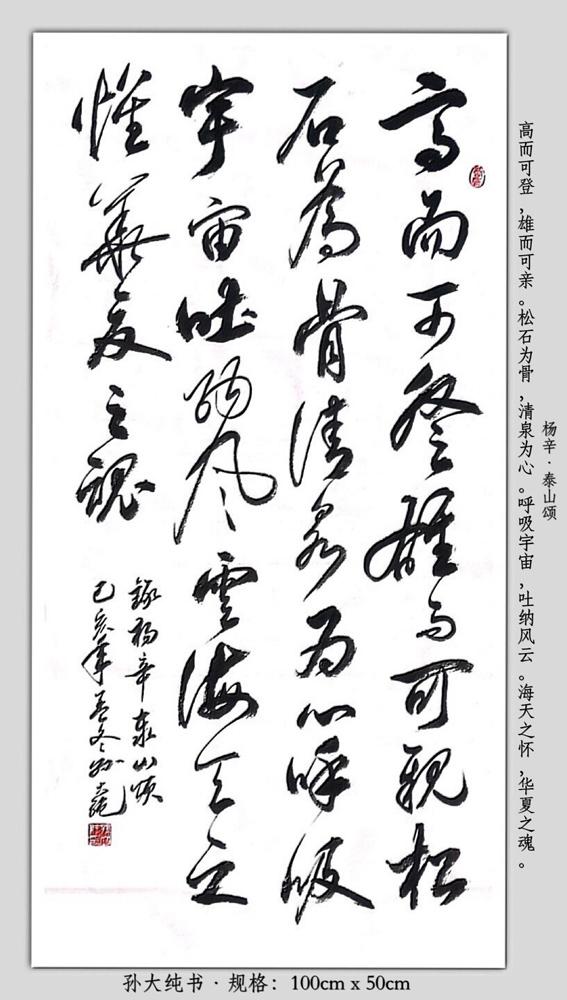 杨辛·泰山颂
高而可登,雄而可亲。松石为骨,清泉为心。呼吸宇宙,吐纳风云。海天之怀,华夏之魂。
高而可登雄而可親松
石為骨清泉为心呼吸
宇宙吐納風雲海天之
懷華夏之魂
錄楊辛泰山頌
己亥年孟冬孫大純
孙大纯书·规格：100cm x 50cm